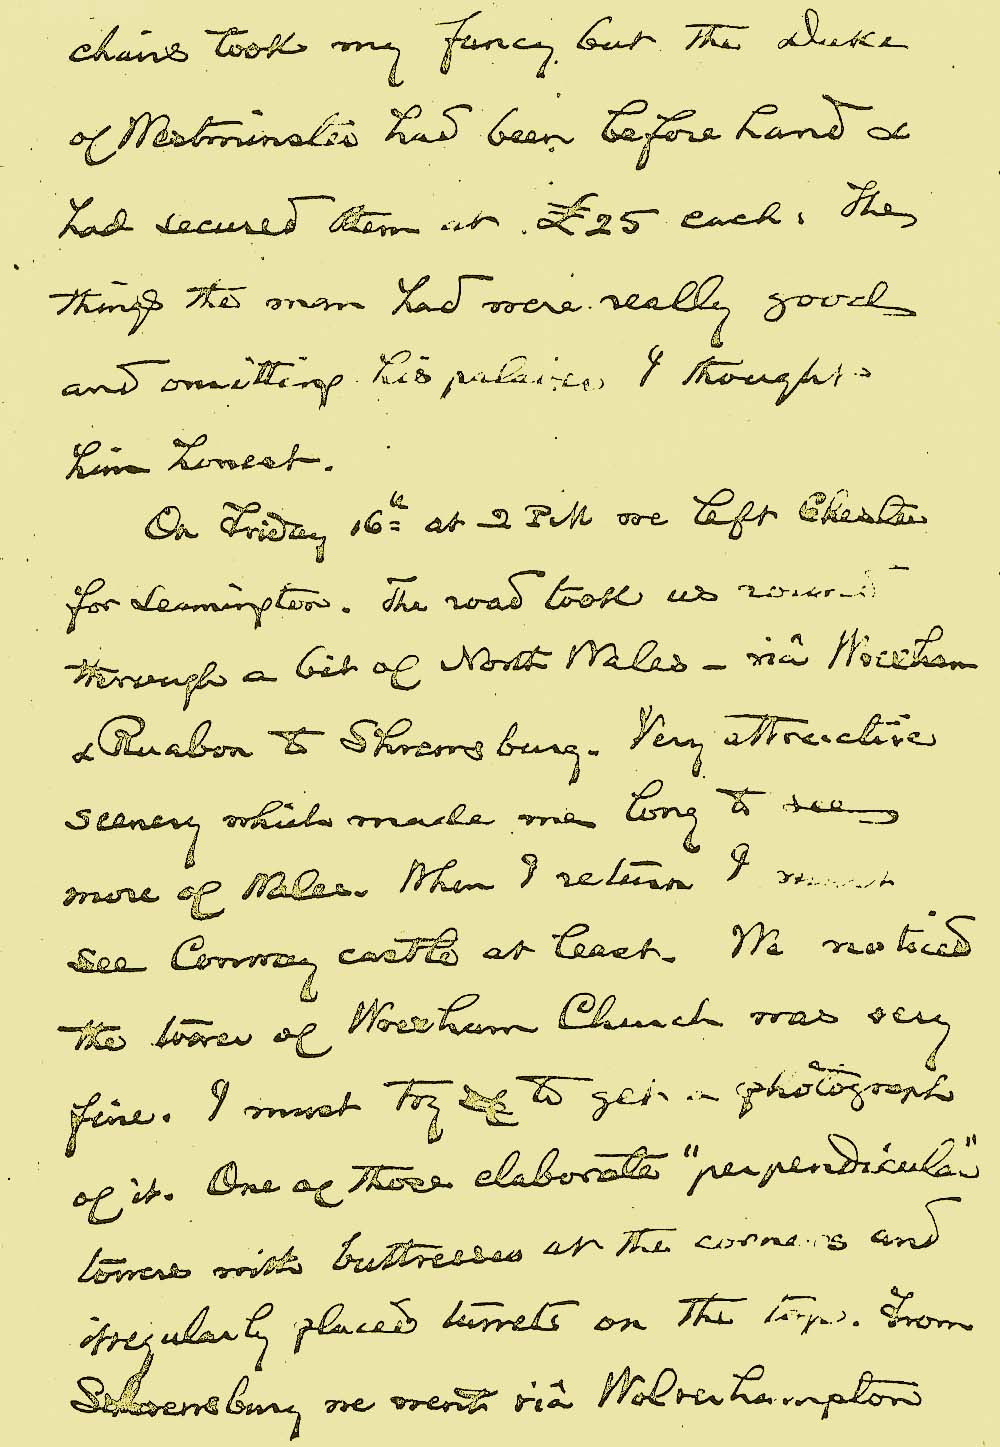 chairs took my fancy but the Duke
of Westminster had been before hand &
had secured them at £25 each. The
things the man had were really good
and omitting his palaver I thought
him honest.
On Friday 16th at 2 P.M we left Chester
for Leamington. The road took us round
through a bit of North Wales – viâ Wrexham
& Ruabon to Shrewsbury. Very attractive
scenery which made me long to see
more of Wales. When I return I must
see Conway castle at least. We noticed
the tower of Wrexham Church was very
fine. I must try to get a photograph
of it. One of those elaborate "perpendicular"
towers with buttresses at the corners and
irregularly placed turrets on the top. From
Shrewsbury we went viâ Wolverhampton